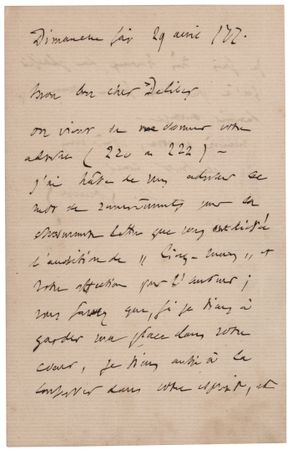 Dimanche soir 29 avril 177.
Mon bon cher Delibes
on vient de me donner votre
adresse (220 ou 222) —
j'ai hâte de vous adresser ce
mot de remerciements pour la
charmante lettre que vous a dictée
l'audition de „ Cinq-Mars " et
votre affection pour l'auteur;
vous savez que, si je tiens à
garder ma place dans votre
cœur, je tiens aussi à la
conserver dans votre esprit, et